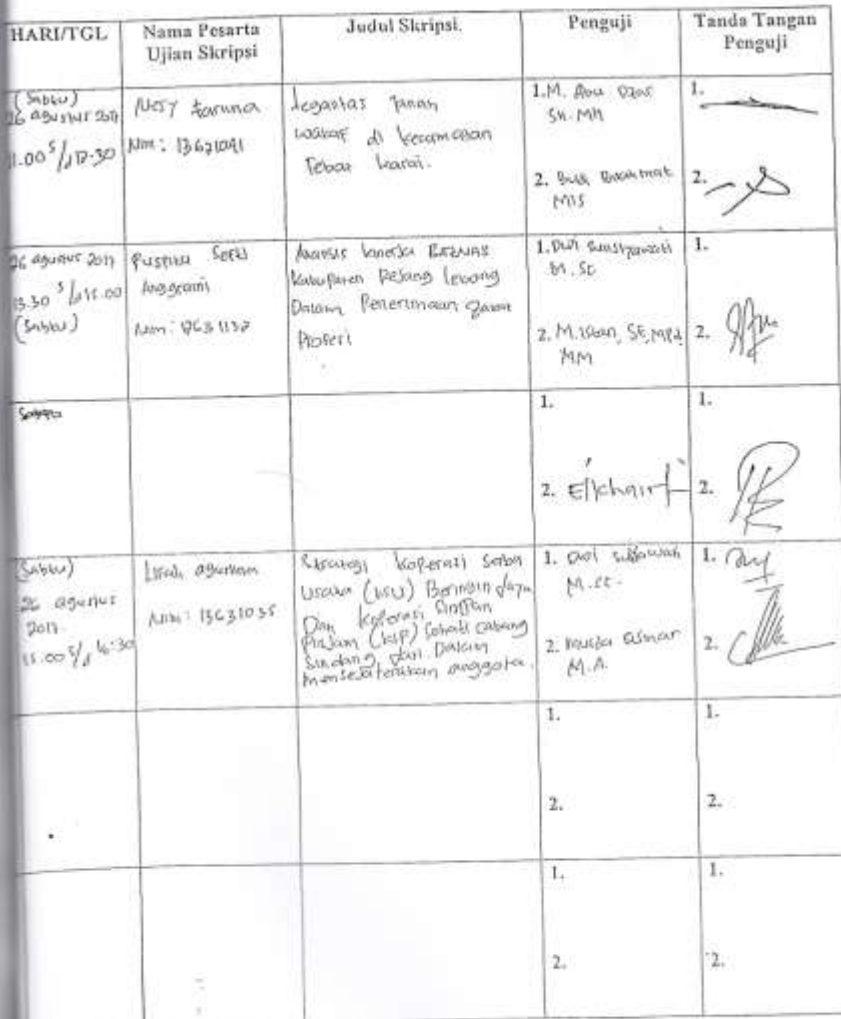 HARI/TGL
Nama Pesarta
Ujian Skripsi
Judul Skripsi.
Penguji
Tanda Tangan
Penguji
(Sabtu)
26 agustus 2017
11.00 s/d 12.30
Nesy taruna
Nim: 13621041
Legalitas Tanah
wakaf di kecamatan
Tebat karai.
1.M. Abu Dzar
SH. MH
2. Budi Birahmat
MIS
1.
2.
26 agustus 2017
13.30 s/d 15.00
(Sabtu)
Puspita
Anggraini
Nim:
Analisis kinerja BAZNAS
Kabupaten Rejang Lebong
Dalam Penerimaan Zakat
Profesi
1. Dwi
M.Sc
2. M. Istan, SE, MPd
MM
1.
2.
1.
2. Elkhairi
1.
2.
(Sabtu)
26 agustus
2017
15.00 s/d 16:30
Nim: 13631035
Strategi koperasi Serba
Usaha (KSU) Beringin Jaya
Dan Koperasi Simpan
Pinjam (KSP) Sehati Cabang
Sindang Dalam
mensejahterakan anggota.
1. Dwi
M.Sc.
2.
M.A.
1.
2.
1.
2.
1.
2.
1.
2.
1.
2.